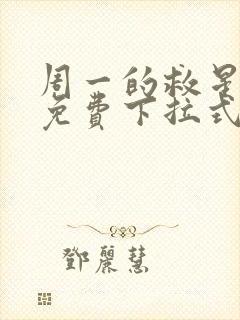 周一的救星
免费下拉式
鄧麗慧